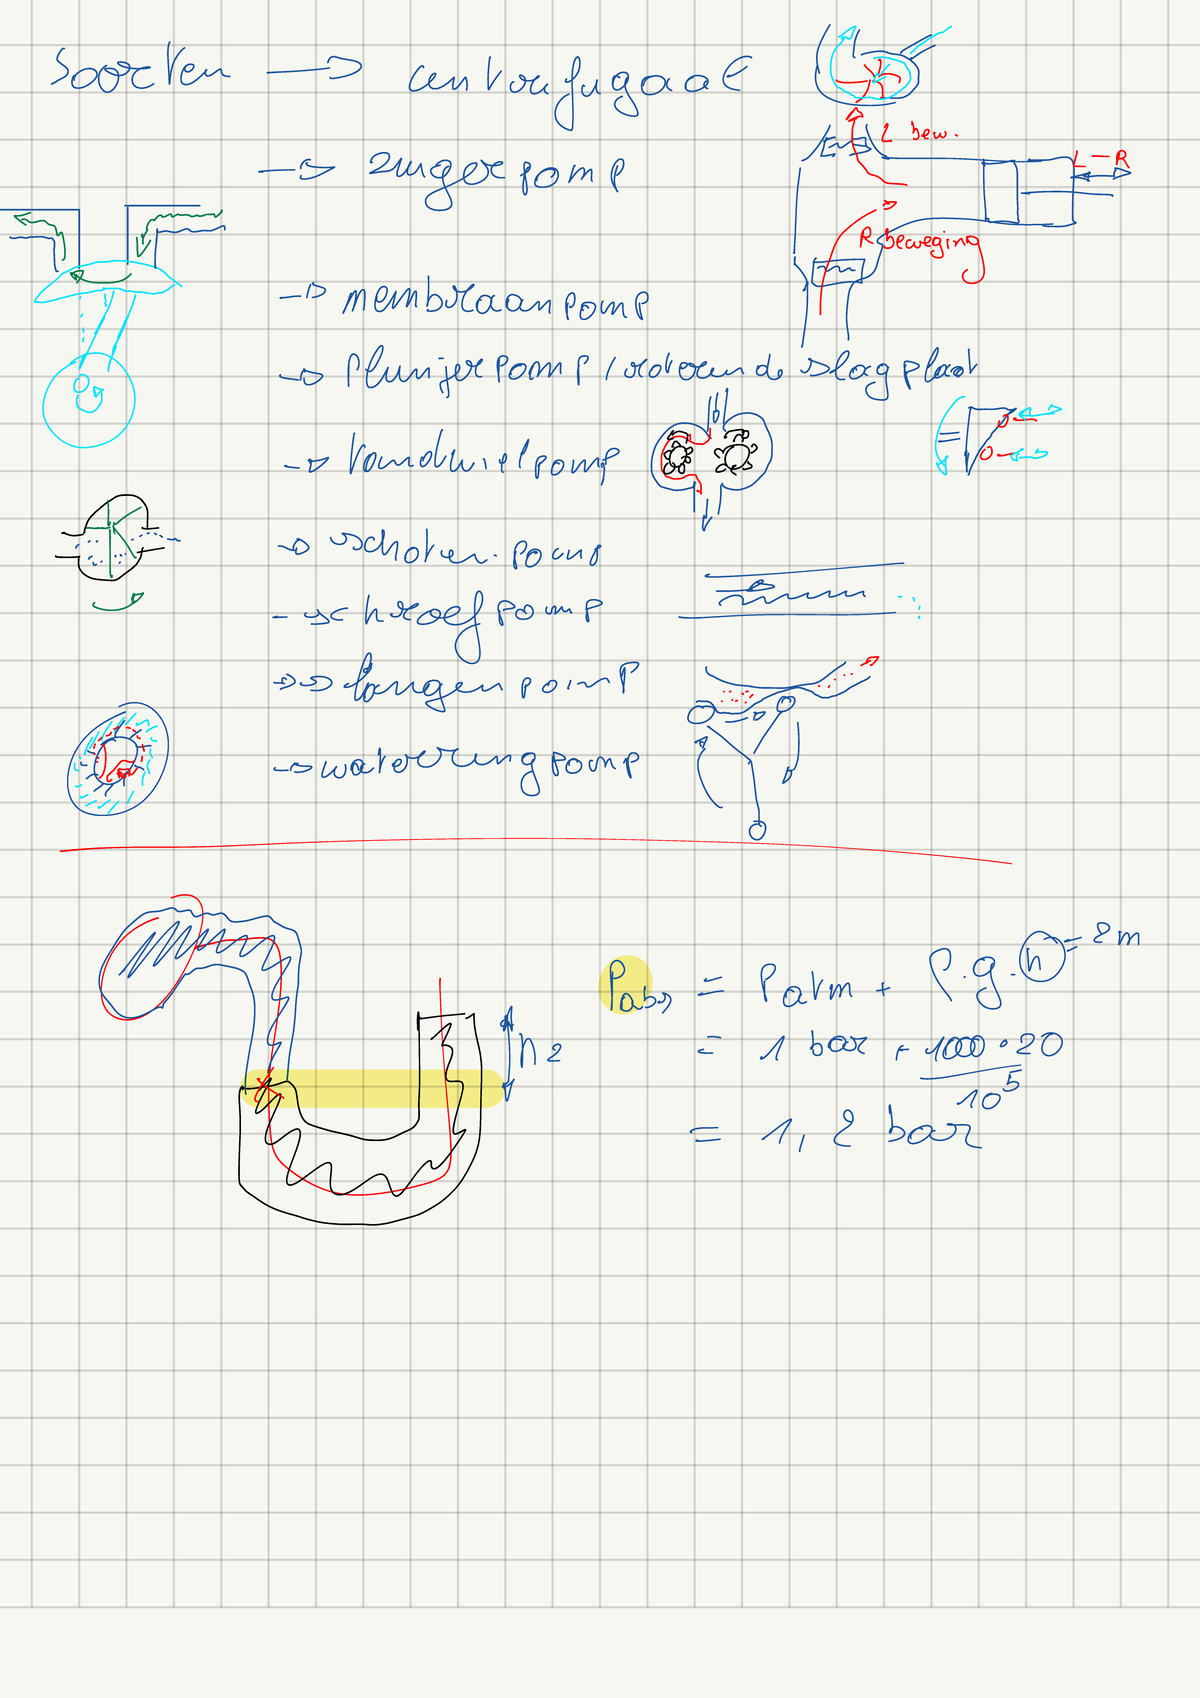 Soorten → centrifugaal
→ zuigerpomp
L bew.
L-R
R beweging
→ membraanpomp
→ plunjerpomp / roterende slagplaat
→ tandwielpomp
→ schotenpomp
- schroefpomp
→ slangenpomp
→ waterringpomp
Pabs = Patm + ρ.g.h = 2m
= 1 bar + 1000 · 20 / 10⁵
= 1,2 bar
h2